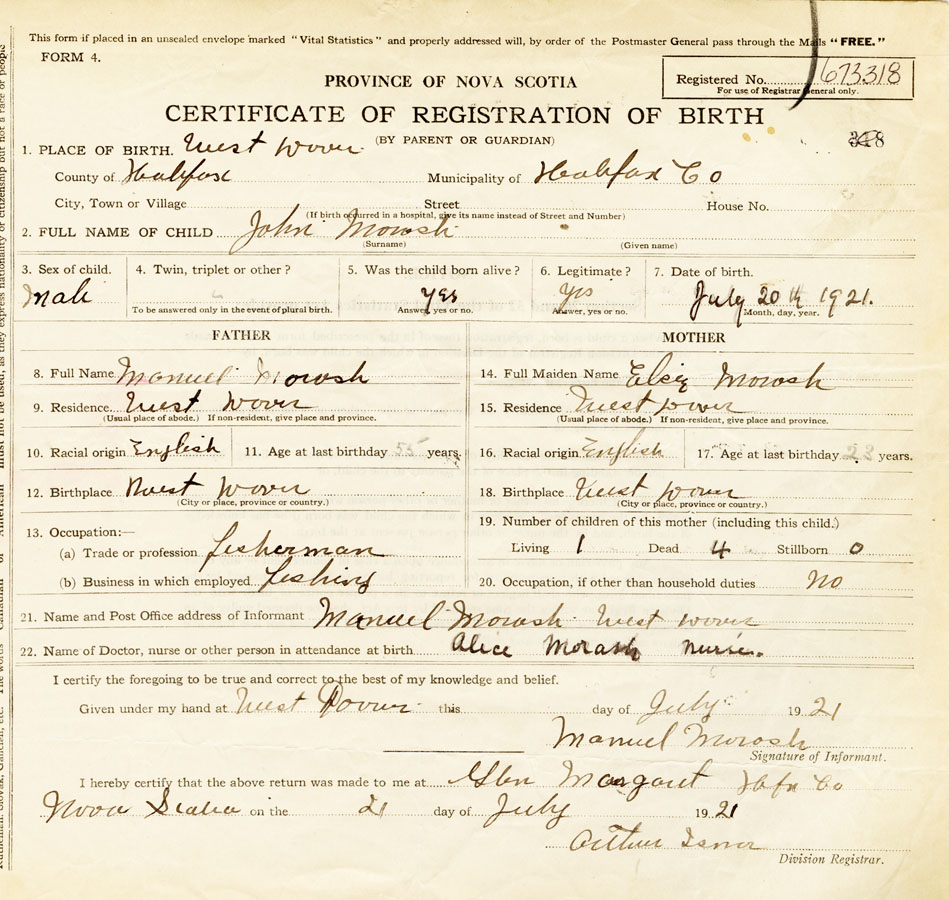 This form if placed in an unsealed envelope marked "Vital Statistics" and properly addressed will, by order of the Postmaster General pass through the Mails "FREE."
FORM 4.
Registered No. 673318
For use of Registrar General only.
PROVINCE OF NOVA SCOTIA
CERTIFICATE OF REGISTRATION OF BIRTH
(BY PARENT OR GUARDIAN)
318
1. PLACE OF BIRTH. West Dover
County of Halifax Municipality of Halifax Co
City, Town or Village Street House No.
(If birth occurred in a hospital, give its name instead of Street and Number)
2. FULL NAME OF CHILD John Morash
(Surname) (Given name)
3. Sex of child. 4. Twin, triplet or other? 5. Was the child born alive? 6. Legitimate? 7. Date of birth.
Male yes yes July 20th 1921.
To be answered only in the event of plural birth. Answer, yes or no. Answer, yes or no. Month, day, year.
FATHER MOTHER
8. Full Name Manuel Morash 14. Full Maiden Name Elsie Morash
9. Residence West Dover 15. Residence West Dover
(Usual place of abode.) If non-resident, give place and province. (Usual place of abode.) If non-resident, give place and province.
10. Racial origin English 11. Age at last birthday 55 years. 16. Racial origin English 17. Age at last birthday 28 years.
12. Birthplace West Dover 18. Birthplace West Dover
(City or place, province or country.) (City or place, province or country.)
13. Occupation:— 19. Number of children of this mother (including this child.)
(a) Trade or profession fisherman Living 1 Dead 4 Stillborn 0
(b) Business in which employed fishing 20. Occupation, if other than household duties no
21. Name and Post Office address of Informant Manuel Morash West Dover
22. Name of Doctor, nurse or other person in attendance at birth Alice Morash nurse.
I certify the foregoing to be true and correct to the best of my knowledge and belief.
Given under my hand at West Dover this day of July 1921
Manuel Morash
Signature of Informant.
I hereby certify that the above return was made to me at Glen Margaret Hfx Co
Nova Scotia on the 21 day of July 1921
Arthur Isnor
Division Registrar.